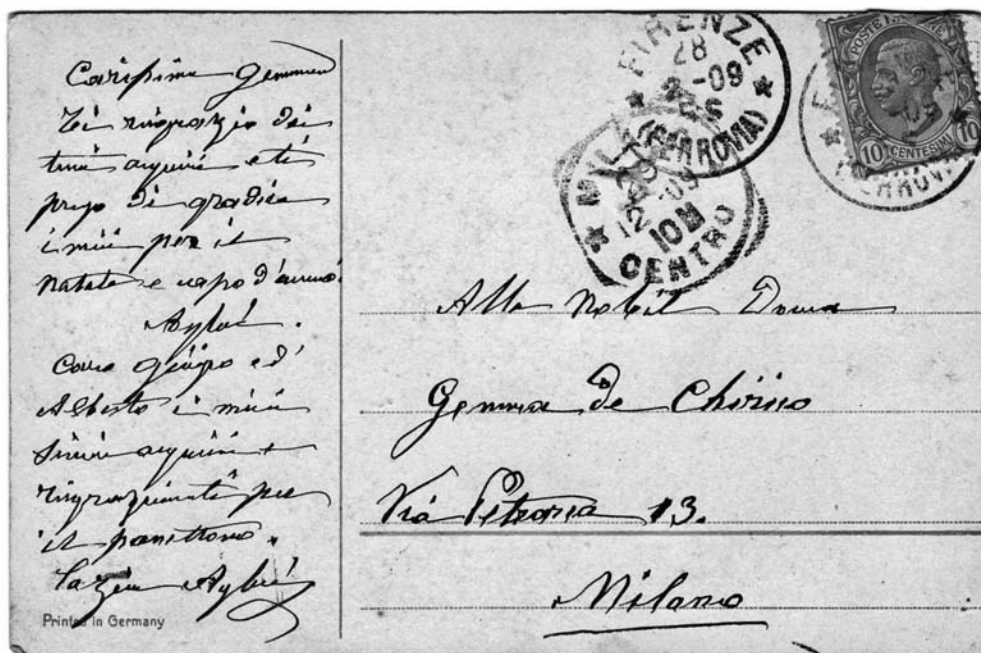 Carissima Gemma
Ti ringrazio dei
tuoi augurii e ti
prego di gradire
i miei per il
natale e capo d'anno.
Caro Giorgio ed
Alberto i miei
augurii e
ringraziamenti per
il panettone.
Printed in Germany
FIRENZE
28
-09
(FERROVIA)
MILANO
10M
CENTRO
POSTE ITALIANE
10 CENTESIMI 10
(FERROVIA)
Alla Nobil Donna
Gemma de Chirico
Via Petrarca 13.
Milano